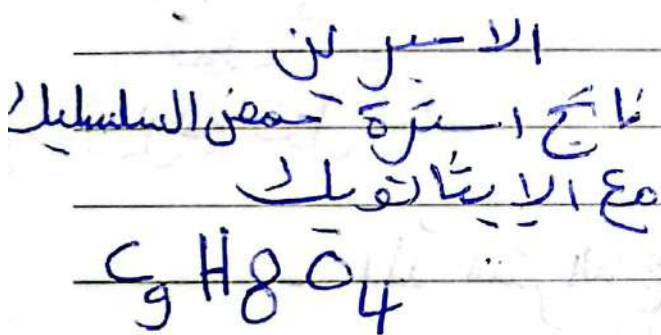 الاسبرين
ناتج استرة حمض السلسليك
مع الايثانويك
C9H8O4